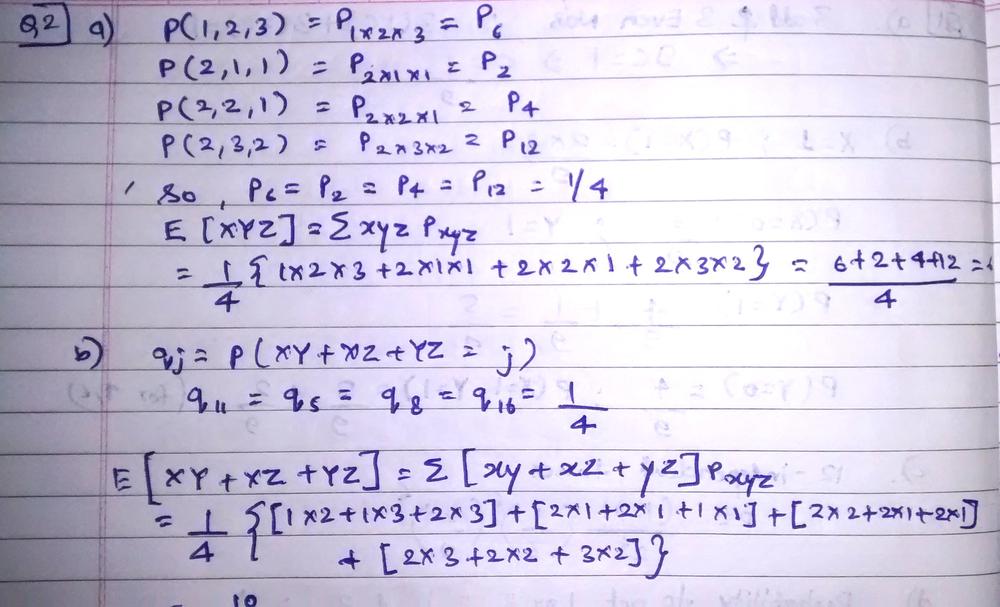 Q2] a) P(1,2,3) = P1x2x3 = P6
P(2,1,1) = P2x1x1 = P2
P(2,2,1) = P2x2x1 = P4
P(2,3,2) = P2x3x2 = P12
so, P6 = P2 = P4 = P12 = 1/4
E [XYZ] = Σ xyz Pxyz
= 1/4 { 1x2x3 + 2x1x1 + 2x2x1 + 2x3x2 } = (6+2+4+12)/4 =
b) qj = P(XY + XZ + YZ = j)
q11 = q5 = q8 = q16 = 1/4
E [XY + XZ + YZ] = Σ [xy + xz + yz] Pxyz
= 1/4 { [1x2+1x3+2x3] + [2x1+2x1+1x1] + [2x2+2x1+2x1]
+ [2x3+2x2+3x2] }